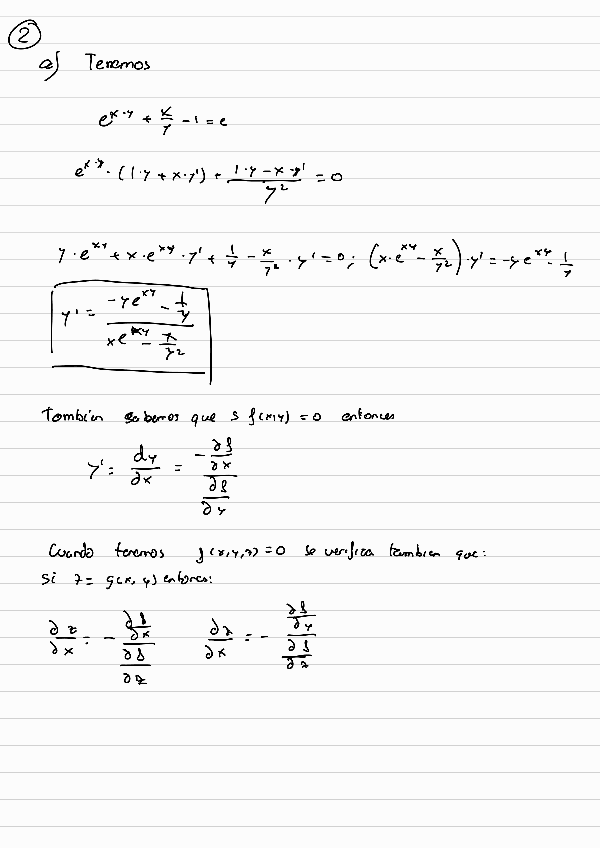 2
a) Tenemos
e^{x·y} + x/y - 1 = e
e^{x·y} · (1·y + x·y') + (1·y - x·y')/y² = 0
y·e^{xy} + x·e^{xy}·y' + 1/y - x/y²·y' = 0; (x·e^{xy} - x/y²)·y' = -y e^{xy} - 1/y
y' = (-y e^{xy} - 1/y)/(x e^{xy} - x/y²)
También sabemos que s f(x,y) = 0 entonces
y' = dy/∂x = (-∂f/∂x)/(∂f/∂y)
Cuando tenemos f(x,y,z) = 0 se verifica tambien que:
Si z = g(x, y) entonces:
∂z/∂x = - (∂f/∂x)/(∂f/∂z) ∂z/∂x = - (∂f/∂y)/(∂f/∂z)